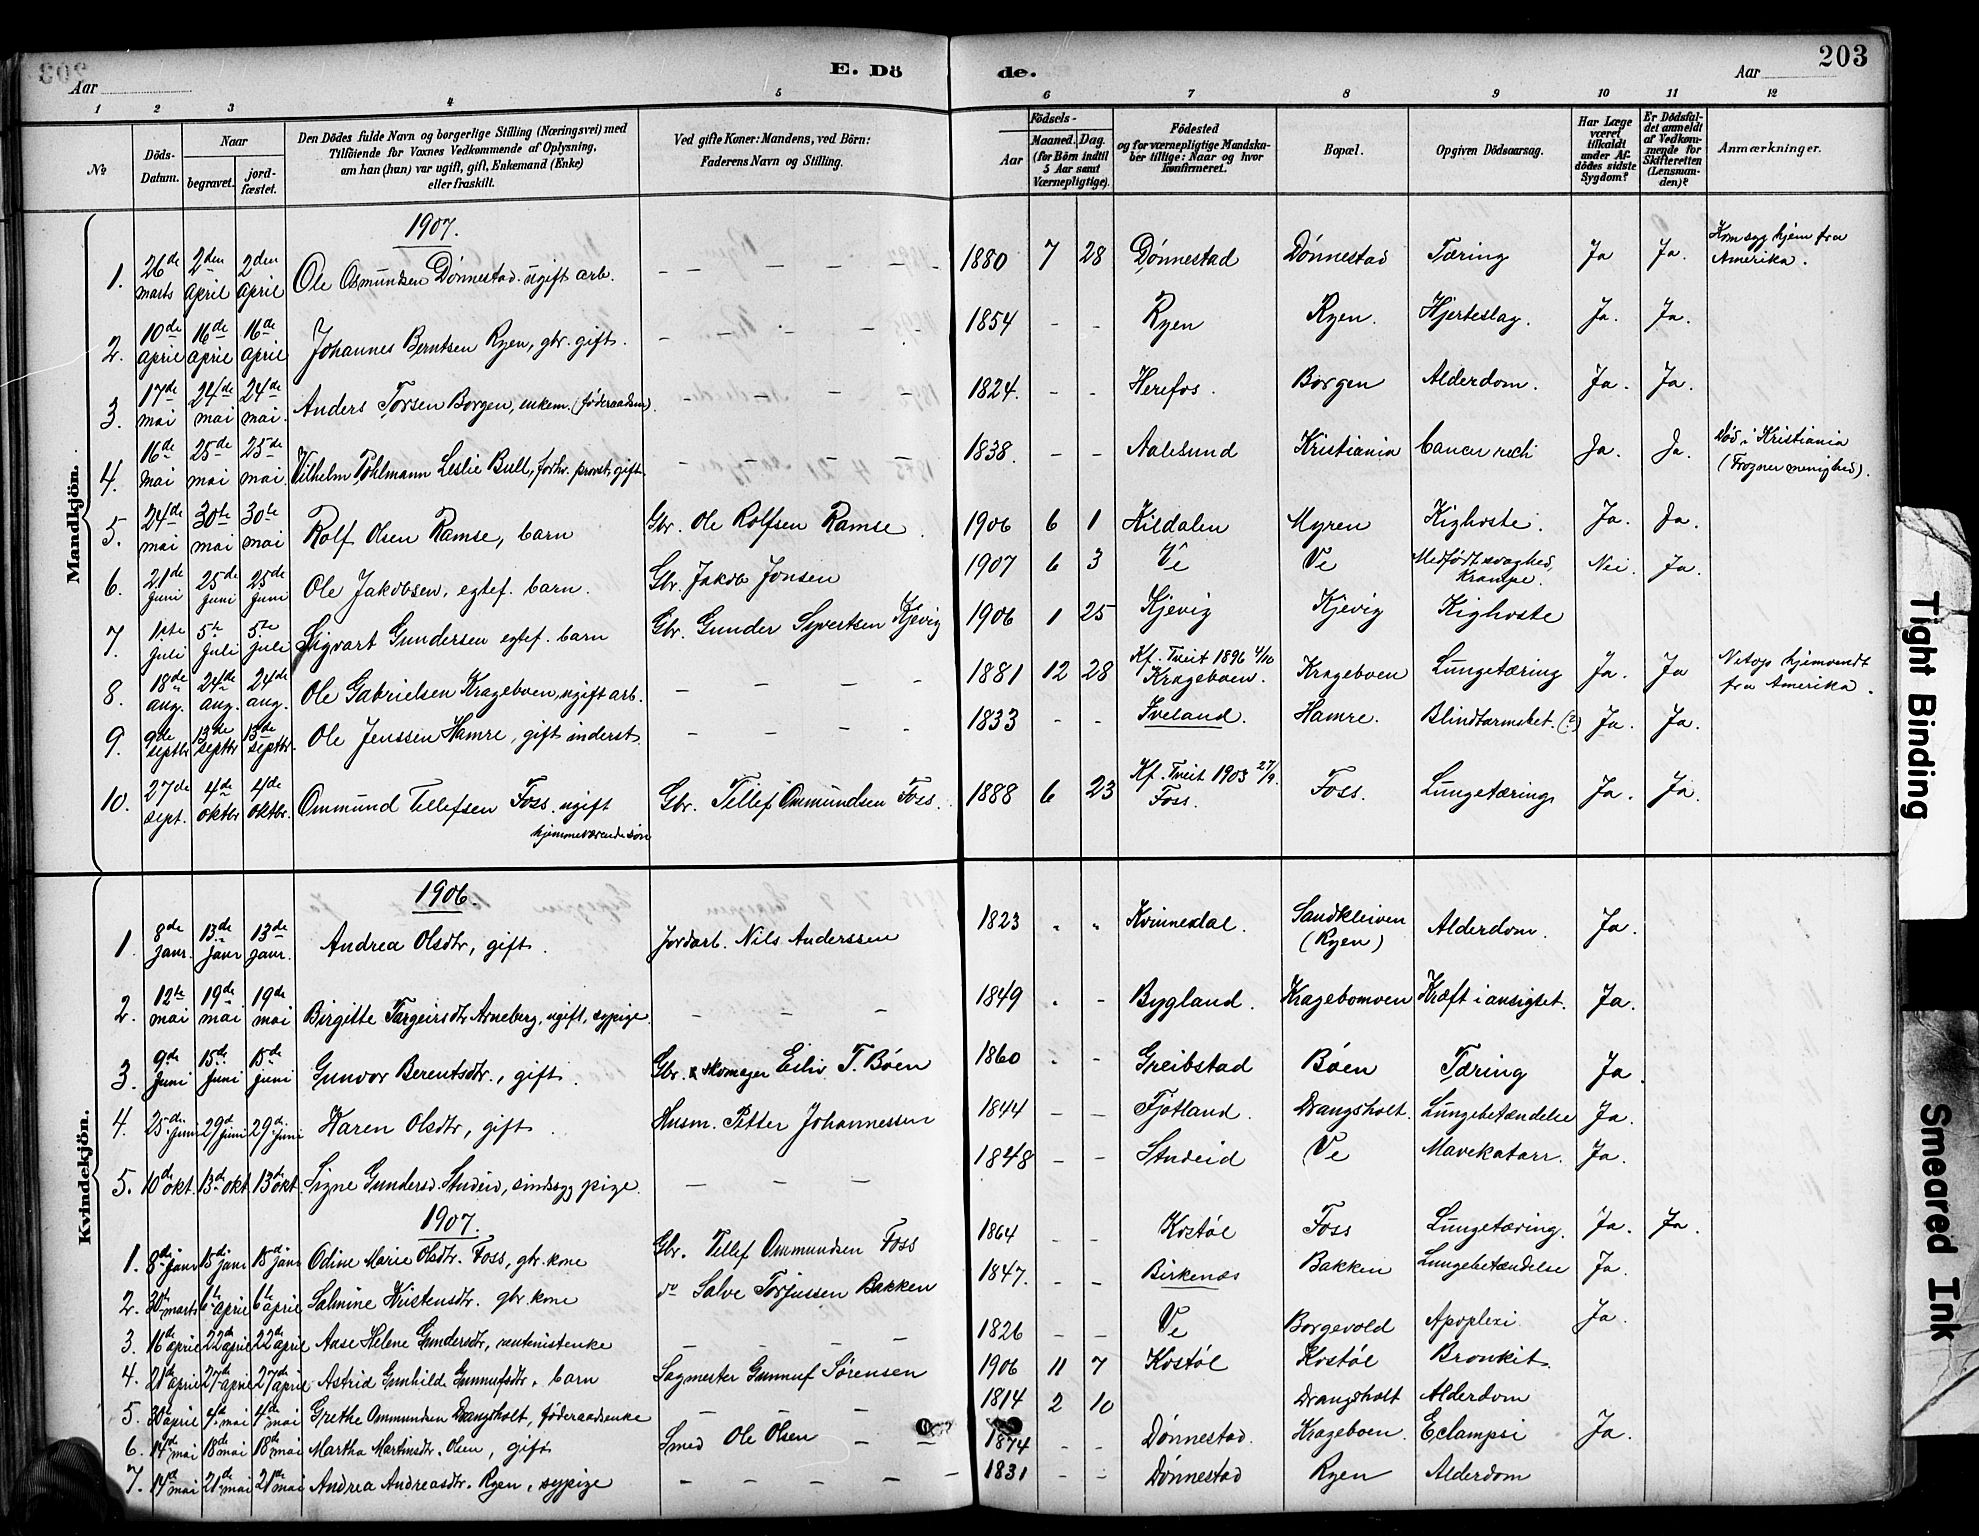 203
Aar E. Döde. Aar
1 2 3 4 5 6 7 8 9 10 11 12
No Döds-Datum. Naar begravet. jordfæstet. Den Dödes fulde Navn og borgerlige Stilling (Næringsvei) med Tilföiende for Voxnes Vedkommende af Oplysning, om han (hun) var ugift, gift, Enkemand (Enke) eller fraskilt. Ved gifte Koner: Mandens, ved Börn: Faderens Navn og Stilling. Födsels- Aar Maaned. Dag. (for Börn indtil 5 Aar samt Værnepligtige). Födested og for værnepligtige Mandskaber tillige: Naar og hvor konfirmeret. Bopæl. Opgiven Dödsaarsag. Har Læge været tilkaldt under Afdödes sidste Sygdom? Er Dödsfaldet anmeldt af Vedkommende for Skifteretten (Lensmanden)? Anmærkninger.
Mandkjön.
1907.
1. 26de marts 2den april 2den april Ole Osmundsen Dønnestad. ugift arb. – – – – – – 1880 7 28 Dønnestad Dønnestad Tæring Ja Ja. Kom syg hjem fra Amerika.
2. 10de april 16de april 16de april Johannes Berntsen Ryen, gbr. gift. – – – – – 1854 – – Ryen Ryen. Hjerteslag. Ja. Ja.
3. 17de mai 24de mai 24de mai. Anders Torsen Borgen, enkem. (føderaadsm). – – – – – 1824. – – Herefos. Borgen Alderdom. Ja. Ja.
4. 16de mai 25de mai 25de mai. Vilhelm Pohlmann Leslie Bull, forhv. provst, gift – – – – – 1838. – – Aalesund Kristiania Cancer recti Ja. Ja. Død i Kristiania (Frogner menighed).
5. 24de mai 30te mai 30te mai Rolf Olsen Ramse, barn Gbr. Ole Rolfsen Ramse. 1906 6 1 Kildalen Myren Kighoste. Ja. Ja.
6. 21de juni 25de juni 25de juni Ole Jakobsen, egtef. barn. Gbr. Jakob Jonsen 1907 6 3 Ve Ve Medfødt svaghed, Krampe. Nei. Ja.
7. 1ste juli 5te juli 5te juli Sigvart Gundersen egtef. barn Gbr. Gunder Syvertsen Kjevig 1906 1 25 Kjevig Kjevig Kighoste
8. 18de aug. 24de aug. 24de aug. Ole Gabrielsen Krageboen, ugift arb. – – – – 1881 12 28 Kf. Tveit 1896 4/10 Krageboen. Krageboen Lungetæring Ja. Ja Netop hjemvendt fra Amerika.
9. 9de septbr 13de septbr 13de septbr. Ole Jenssen Hamre, gift inderst. – – – – 1833 – – Iveland. Hamre. Blindtarmsbet. (?) Ja. Ja.
10. 27de sept. 4de oktbr 4de oktbr. Ommund Tellefsen Foss. ugift hjemmeværende søn Gbr. Tellef Ommundsen Foss. 1888 6 23 Kf. Tveit 1903 27/9. Foss. Foss. Lungetæring Ja. Ja.
Kvindekjön.
1906
1. 8de janr. 13de janr 13de janr. Andrea Olsdtr, gift. Jordarb. Nils Anderssen 1823 " " Kvinnesdal. Sandkleiven (Ryen) Alderdom. Ja.
2. 12te mai 19de mai 19de mai Birgitte Targeirsdtr Arneberg, ugift, sypige. – – – 1849 " – Bygland. Kragebomoen Kræft i ansigtet. Ja.
3. 9de juni 15de juni 15de juni Gunvor Berentsdtr., gift. Gbr. & skomager Eiliv T. Bøen 1860 " – Greibstad Bøen Tæring Ja.
4. 25de juni 29de juni 29de juni Karen Olsdtr, gift. Husm. Petter Johannessen 1844 – – Fjotland. Drangsholt. Lungebetændelse Ja.
5. 10de okt. 13de okt 13de okt. Signe Gundersd. Studeid, sindssyg pige. – – – 1848 – – Studeid Ve Mavekatarr. Ja.
1907.
1. 8de janr 15de janr 15de janr Odine Marie Olsdtr. Foss, gbr. kone Gbr. Tellef Ommundsen Foss 1864 – – Kostøl Foss Lungetæring. Ja. Ja.
2. 30te marts 6te april 6te april Salmine Kristensdtr. gbr. kone do Salve Torjussen Bakken 1847. – – Birkenæs Bakken Lungebetændelse Ja.
3. 16de april 22de april 22de april Aase Helene Gundersdtr, rentenistenke – – – – 1826 – – Ve Borgevold Apoplexi. Ja.
4. 21de april 27de april 27de april Astrid Gunhilde Gunnufsdtr. barn Sagmester Gunnuf Sørensen 1906 11 7 Kostøl Kostøl Bronkit.
5. 30te april 4de mai 4de mai Grethe Ommundsen Drangsholt, føderaadsenke – – – 1814 2 10 Drangsholt Alderdom
6. 14de mai 18de mai 18de mai Martha Martinsdtr. Olsen, gift Smed Ole Olsen – – 1874 – – Dønnestad. Krageboen. Eclampsi Ja.
7. 14de mai 21de mai 21de mai Andrea Andreasdtr. Ryen, sypige – – – – – 1831 – – Dønnestad Ryen Alderdom
Tight Binding
Smeared Ink